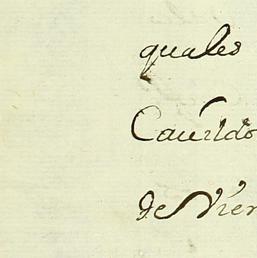 quales
Cavildo
de Nier